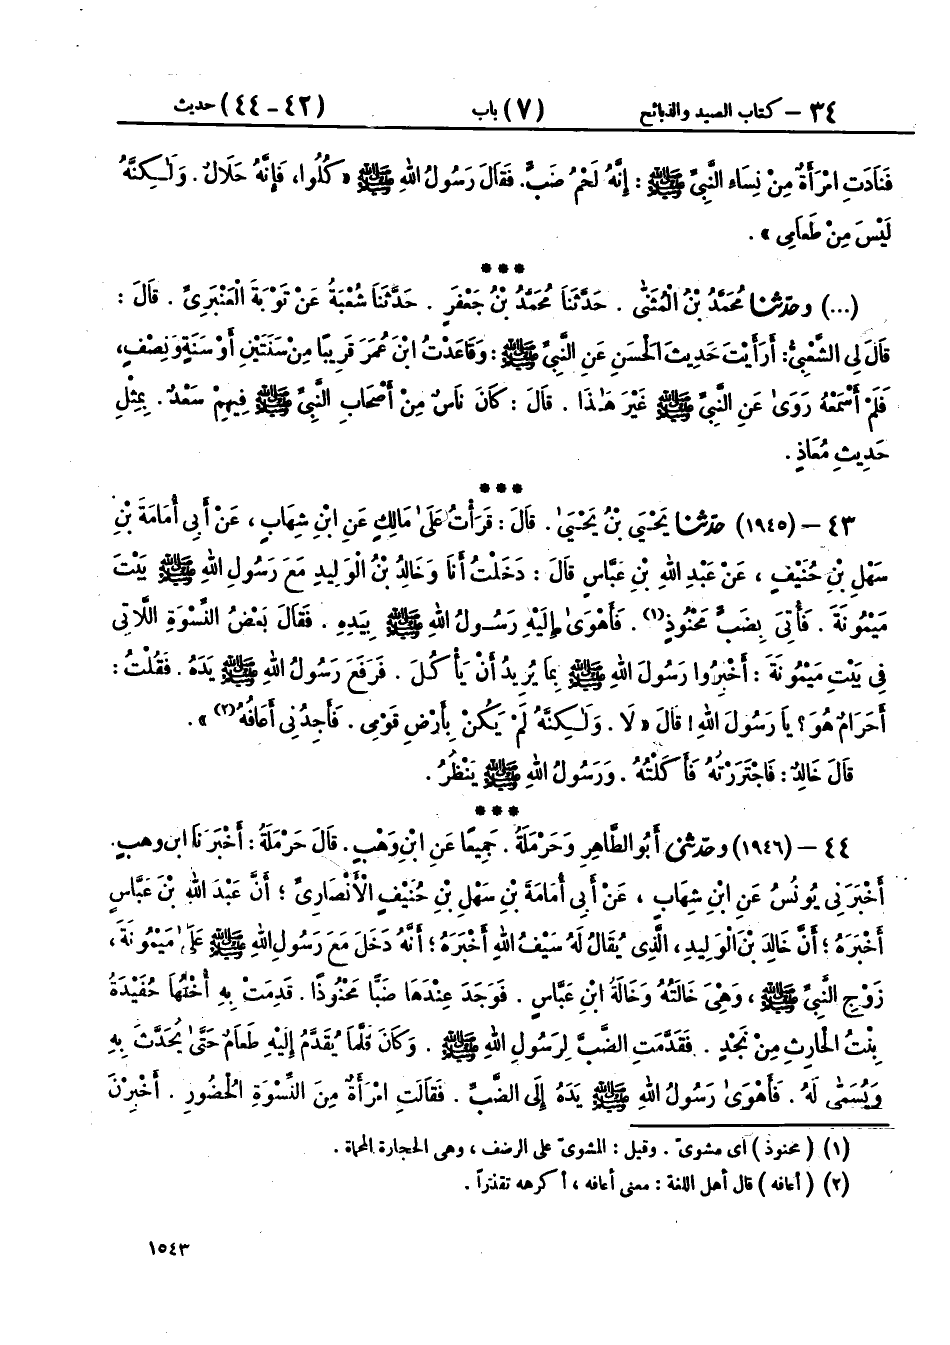 ٣٤ – كتاب الصيد والذبائح (٧) باب (٤٢ - ٤٤) حديث
فَنَادَتِ امْرَأَةٌ مِنْ نِسَاءِ النَّبِيِّ ﷺ : إِنَّهُ لَحْمُ ضَبٍّ. فَقَالَ رَسُولُ اللهِ ﷺ « كُلُوا، فَإِنَّهُ حَلَالٌ . وَلَـٰكِنَّهُ
لَيْسَ مِنْ طَعَامِي » .
***
(...) وحَدَّثَنَا مُحَمَّدُ بْنُ الْمُثَنَّىٰ . حَدَّثَنَا مُحَمَّدُ بْنُ جَعْفَرٍ . حَدَّثَنَا شُعْبَةُ عَنْ تَوْبَةَ الْعَنْبَرِيِّ . قَالَ :
قَالَ لِي الشَّعْبِيُّ: أَرَأَيْتَ حَدِيثَ الْحَسَنِ عَنِ النَّبِيِّ ﷺ : وَقَاعَدْتُ ابْنَ عُمَرَ قَرِيبًا مِنْ سَنَتَيْنِ أَوْ سَنَةٍ وَنِصْفٍ،
فَلَمْ أَسْمَعْهُ رَوَىٰ عَنِ النَّبِيِّ ﷺ غَيْرَ هَـٰذَا . قَالَ : كَانَ نَاسٌ مِنْ أَصْحَابِ النَّبِيِّ ﷺ فِيهِمْ سَعْدٌ . بِمِثْلِ
حَدِيثِ مُعَاذٍ .
***
٤٣ – (١٩٤٥) حَدَّثَنَا يَحْيَى بْنُ يَحْيَىٰ . قَالَ : قَرَأْتُ عَلَىٰ مَالِكٍ عَنِ ابْنِ شِهَابٍ ، عَنْ أَبِي أُمَامَةَ بْنِ
سَهْلِ بْنِ حُنَيْفٍ ، عَنْ عَبْدِ اللهِ بْنِ عَبَّاسٍ قَالَ : دَخَلْتُ أَنَا وَخَالِدُ بْنُ الْوَلِيدِ مَعَ رَسُولِ اللهِ ﷺ بَيْتَ
مَيْمُونَةَ . فَأُتِيَ بِضَبٍّ مَحْنُوذٍ(١) . فَأَهْوَىٰ إِلَيْهِ رَسُولُ اللهِ ﷺ بِيَدِهِ . فَقَالَ بَعْضُ النِّسْوَةِ اللَّاتِي
فِي بَيْتِ مَيْمُونَةَ : أَخْبِرُوا رَسُولَ اللهِ ﷺ بِمَا يُرِيدُ أَنْ يَأْكُلَ . فَرَفَعَ رَسُولُ اللهِ ﷺ يَدَهُ . فَقُلْتُ :
أَحَرَامٌ هُوَ؟ يَا رَسُولَ اللهِ! قَالَ « لَا . وَلَـٰكِنَّهُ لَمْ يَكُنْ بِأَرْضِ قَوْمِي . فَأَجِدُنِي أَعَافُهُ(٢) » .
قَالَ خَالِدٌ : فَاجْتَرَرْتُهُ فَأَكَلْتُهُ . وَرَسُولُ اللهِ ﷺ يَنْظُرُ .
***
٤٤ – (١٩٤٦) وحَدَّثَنِي أَبُو الطَّاهِرِ وَحَرْمَلَةُ . جَمِيعًا عَنِ ابْنِ وَهْبٍ . قَالَ حَرْمَلَةُ : أَخْبَرَنَا ابن وهبٍ.
أَخْبَرَنِي يُونُسُ عَنِ ابْنِ شِهَابٍ ، عَنْ أَبِي أُمَامَةَ بْنِ سَهْلِ بْنِ حُنَيْفٍ الْأَنْصَارِيِّ ؛ أَنَّ عَبْدَ اللهِ بْنَ عَبَّاسٍ
أَخْبَرَهُ ؛ أَنَّ خَالِدَ بْنَ الْوَلِيدِ ، الَّذِي يُقَالُ لَهُ سَيْفُ اللهِ أَخْبَرَهُ ؛ أَنَّهُ دَخَلَ مَعَ رَسُولِ اللهِ ﷺ عَلَىٰ مَيْمُونَةَ ،
زَوْجِ النَّبِيِّ ﷺ ، وَهِيَ خَالَتُهُ وَخَالَةُ ابْنِ عَبَّاسٍ . فَوَجَدَ عِنْدَهَا ضَبًّا مَحْنُوذًا . قَدِمَتْ بِهِ أُخْتُهَا حُفَيْدَةُ
بِنْتُ الْحَارِثِ مِنْ نَجْدٍ . فَقَدَّمَتِ الضَّبَّ لِرَسُولِ اللهِ ﷺ . وَكَانَ قَلَّمَا يُقَدَّمُ إِلَيْهِ طَعَامٌ حَتَّىٰ يُحَدَّثَ بِهِ
وَيُسَمَّىٰ لَهُ . فَأَهْوَىٰ رَسُولُ اللهِ ﷺ يَدَهُ إِلَى الضَّبِّ . فَقَالَتِ امْرَأَةٌ مِنَ النِّسْوَةِ الْحُضُورِ . أَخْبِرْنَ
(١) ( محنوذ ) أى مشوىّ . وقيل : المشوىّ على الرضف ، وهى الحجارة المحماة .
(٢) ( أعافه ) قال أهل اللغة : معنى أعافه ، أكرهه تقذراً .
١٥٤٣